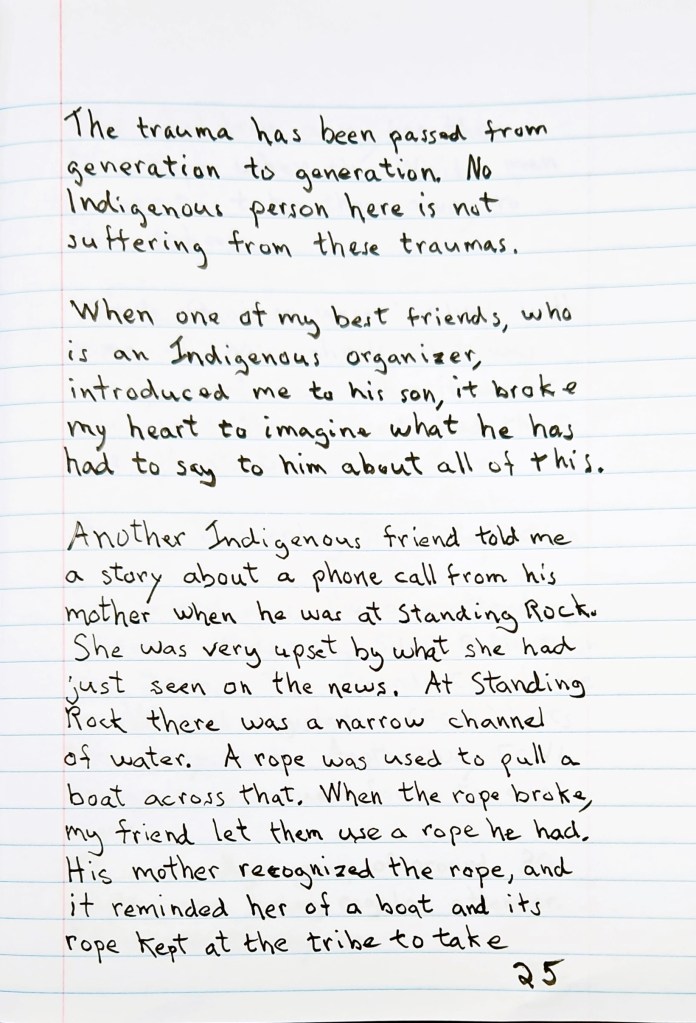 The trauma has been passed from
generation to generation. No
Indigenous person here is not
suffering from these traumas.
When one of my best friends, who
is an Indigenous organizer,
introduced me to his son, it broke
my heart to imagine what he has
had to say to him about all of this.
Another Indigenous friend told me
a story about a phone call from his
mother when he was at Standing Rock.
She was very upset by what she had
just seen on the news. At Standing
Rock there was a narrow channel
of water. A rope was used to pull a
boat across that. When the rope broke,
my friend let them use a rope he had.
His mother recognized the rope, and
it reminded her of a boat and its
rope kept at the tribe to take
25